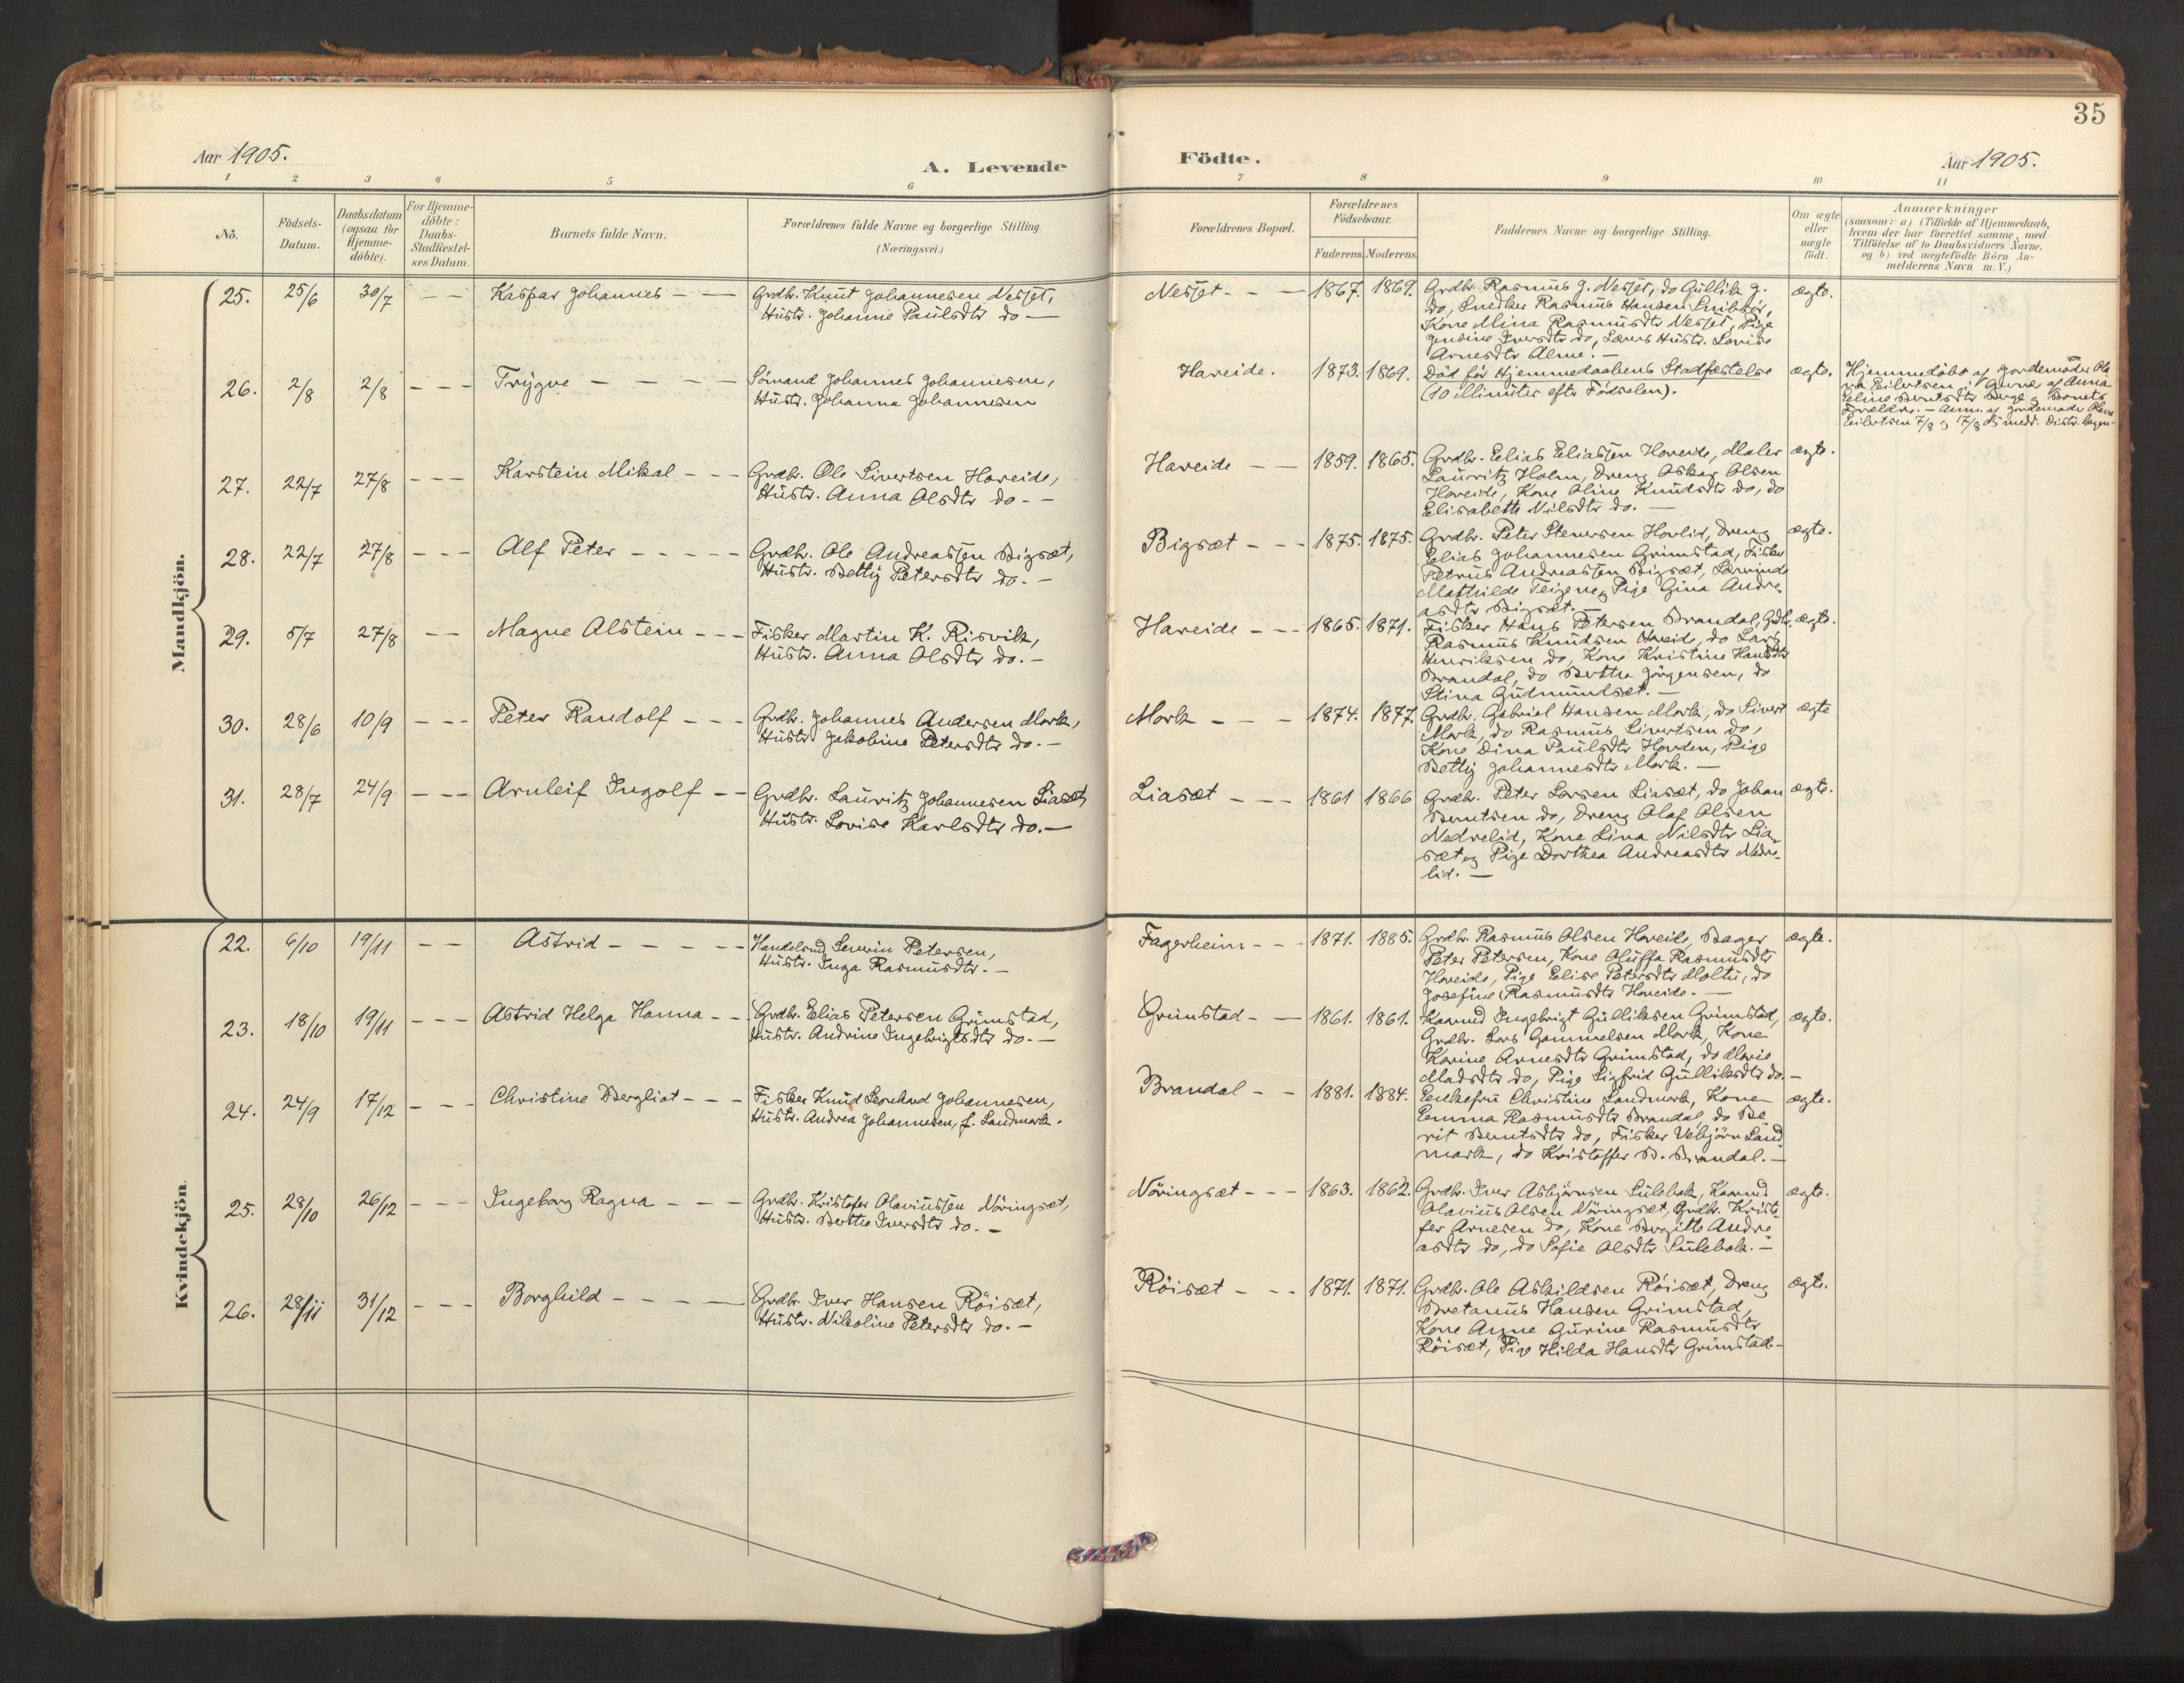 35
Aar 1905.
A. Levende
Födte.
Aar 1905.
1 2 3 4 5 6 7 8 9 10 11
No.
Födsels-
Datum.
Daabsdatum
(ogsaa for
Hjemme-
döbte).
For Hjemme-
döbte:
Daabs-
Stadfæstel-
ses Datum.
Barnets fulde Navn.
Forældrenes fulde Navne og borgerlige Stilling.
(Næringsvei.)
Forældrenes Bopæl.
Forældrenes
Födselsaar.
Faderens. Moderens.
Faddernes Navne og borgerlige Stilling.
Om ægte
eller
uægte
födt.
Anmærkninger
(saasom: a) i Tilfælde af Hjemmedaab,
hvem der har forrettet samme, med
Tilföielse af to Daabsvidners Navne.
og b) ved uægtefödte Börn An-
melderens Navn m. V.)
Mandkjön.
25. 25/6 30/7 - - Kaspar Johannes - -
Grdbr. Knut Johannesen Nesset,
Hustr. Johanne Paulsdtr do -
Nesset - - - 1867. 1869.
Grdbr. Rasmus J. Nesset, do Gullik J.
do, Snedker Rasmus Hansen
Kone Mina Rasmusdtr Nesset, Pige
Jensine Iversdtr do, Lærers Hustr. Lovise
Arnesdtr Alme. -
ægte.
26. 2/8 2/8 - - - Trygve - - - -
Sömand Johannes Johannesen,
Hustr. Johanna Johannesen
Hareide. 1873. 1869.
Död för Hjemmedaabens Stadfæstelse
(10 Minuter efter Födselen).
ægte.
Hjemmedöbt af Jordemoder
Eilertsen i Nærvær af Anna
Eline Berntsdtr Berge og Barnets
Forældre. - Anm. af Jordemoder
Eilertsen 7/8 og 17/8 05 medd. Distr. lægen.
27. 22/7 27/8 - - - Karstein Mikal - - -
Grdbr. Ole Sivertsen Hareide,
Hustr. Anna Olsdtr do - -
Hareide - - 1859. 1865.
Grdbr. Elias Eliassen Hareide, Maler
Lauritz Holm, Dreng Oskar Olsen
Hareide, Kone Oline Knudsdtr do, do
Elisabeth Nilsdtr do. -
ægte.
28. 22/7 27/8 - - - Alf Peter - - - - -
Grdbr. Ole Andreassen Bigsæt,
Hustr. Betty Petersdtr do. -
Bigsæt - - - 1875. 1875.
Grdbr. Peter Stenersen Hovlid, Dreng
Elias Johannesen Grimstad, Fisker
Petrus Andreassen Bigsæt, Lærerinde
Mathilde Teigene, Pige Gina Andre-
asdtr Bigsæt. -
ægte.
29. 5/7 27/8 - - Magne Alstein - - -
Fisker Martin K. Risvik,
Hustr. Anna Olsdtr do. -
Hareide - - - 1865. 1871.
Fisker Hans Petersen Brandal, Gdb.
Rasmus Knudsen Hareide, do Lars
Henriksen do, Kone Kristine Hansdtr
Brandal, do Berthe Jörgensen, do
Stina Gudmundsæt. -
ægte.
30. 28/6 10/9 - - - Peter Randolf - - -
Grdbr. Johannes Andersen Mork,
Hustr. Jakobine Petersdtr do. -
Mork - - - 1874. 1877.
Grdbr. Gabriel Hansen Mork, do Sivert
Mork, do Rasmus Sivertsen do,
Kone Dina Paulsdtr Hovden, Pige
Betty Johannesdtr Mork. -
ægte
31. 28/7 24/9 - - - Arnleif Ingolf - -
Grdbr. Lauritz Johannesen Liasæt,
Hustr. Lovise Karlsdtr do. -
Liasæt - - - 1861 1866
Grdbr. Peter Larsen Liasæt, do Johan
Berntsen do, Dreng Olaf Olsen
Nedrelid, Kone Lina Nilsdtr Lia-
sæt og Pige Dorthea Andreasdtr Nedre-
lid. -
ægte.
Kvindekjön.
22. 6/10 19/11 - - Astrid - - - - -
Handelsmd Severin Petersen,
Hustr. Inga Rasmusdtr. -
Fagerheim - - - 1871. 1885.
Grdbr. Rasmus Olsen Hareide, Bager
Peter Petersen, Kone Oluffa Rasmusdtr
Hareide, Pige Elise Petersdtr Moltu, do
Josefine Rasmusdtr Hareide. -
ægte.
23. 18/10 19/11 - - - Astrid Helga Hanna - -
Grdbr. Elias Petersen Grimstad,
Hustr. Andrine Ingebrigtsdtr do. -
Grimstad - - 1861. 1861.
Kaarmd Ingebrigt Gulliksen Grimstad,
Grdbr. Lars Gammelsen Mork, Kone
Karine Arnesdtr Grimstad, do Marie
Madsdtr do, Pige Sigfrid Gulliksdtr do. -
ægte.
24. 24/9 17/12 - - - Christine Bergliot - - -
Fisker Knud Leonhard Johannesen,
Hustr. Andrea Johannesen, f. Landmark.
Brandal - - 1881. 1884.
Enkefru Christine Landmark, Kone
Emma Rasmusdtr Brandal, do Be-
rit Berntsdtr do, Fisker Vebjörn Land-
mark, do Kristoffer B. Brandal. -
ægte.
25. 28/10 26/12 - - - Ingeborg Ragna - - -
Grdbr. Kristofer Olaviussen Nöringsæt,
Hustr. Berthe Iversdtr do. -
Nöringsæt - - - 1863. 1862.
Grdbr. Iver Asbjörnsen Sulebak, Kaarmd
Olavius Olsen Nöringsæt, Grdbr. Kristo-
fer Arnesen do, Kone Birgitte Andre-
asdtr do, do Sofie Olsdtr Sulebak. -
ægte.
26. 28/11 31/12 - - - Borghild - - - -
Grdbr. Iver Hansen Röisæt,
Hustr. Nikoline Petersdtr do. -
Röisæt - - - 1871. 1871.
Grdbr. Ole Askildsen Röisæt, Dreng
Bretanus Hansen Grimstad,
Kone Anne Gurine Rasmusdtr
Röisæt, Pige Hilda Hansdtr Grimstad -
ægte.